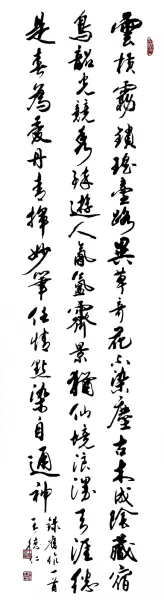 雲橫霧鎖瑤臺路異草奇花不染塵古木成陰藏宿
鳥韶光競秀醉遊人氤氳霽景猶仙境浪漫天涯總
是春為愛丹青揮妙筆任情點染自通神
錄舊作一首
王德仁